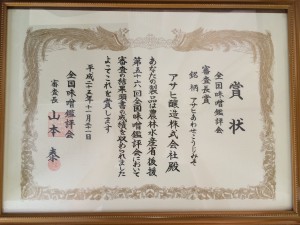 賞状
全国味噌鑑評会
審査長賞
銘柄 アサヒあわせこうじみそ
アサヒ醸造株式会社殿
あなたの製品は農林水産省後援
第五十六回全国味噌鑑評会において
審査の結果頭書の成績を収められました
よってこれを賞します
平成二十五年十一月二十二日
全国味噌鑑評会
審査長 山本泰